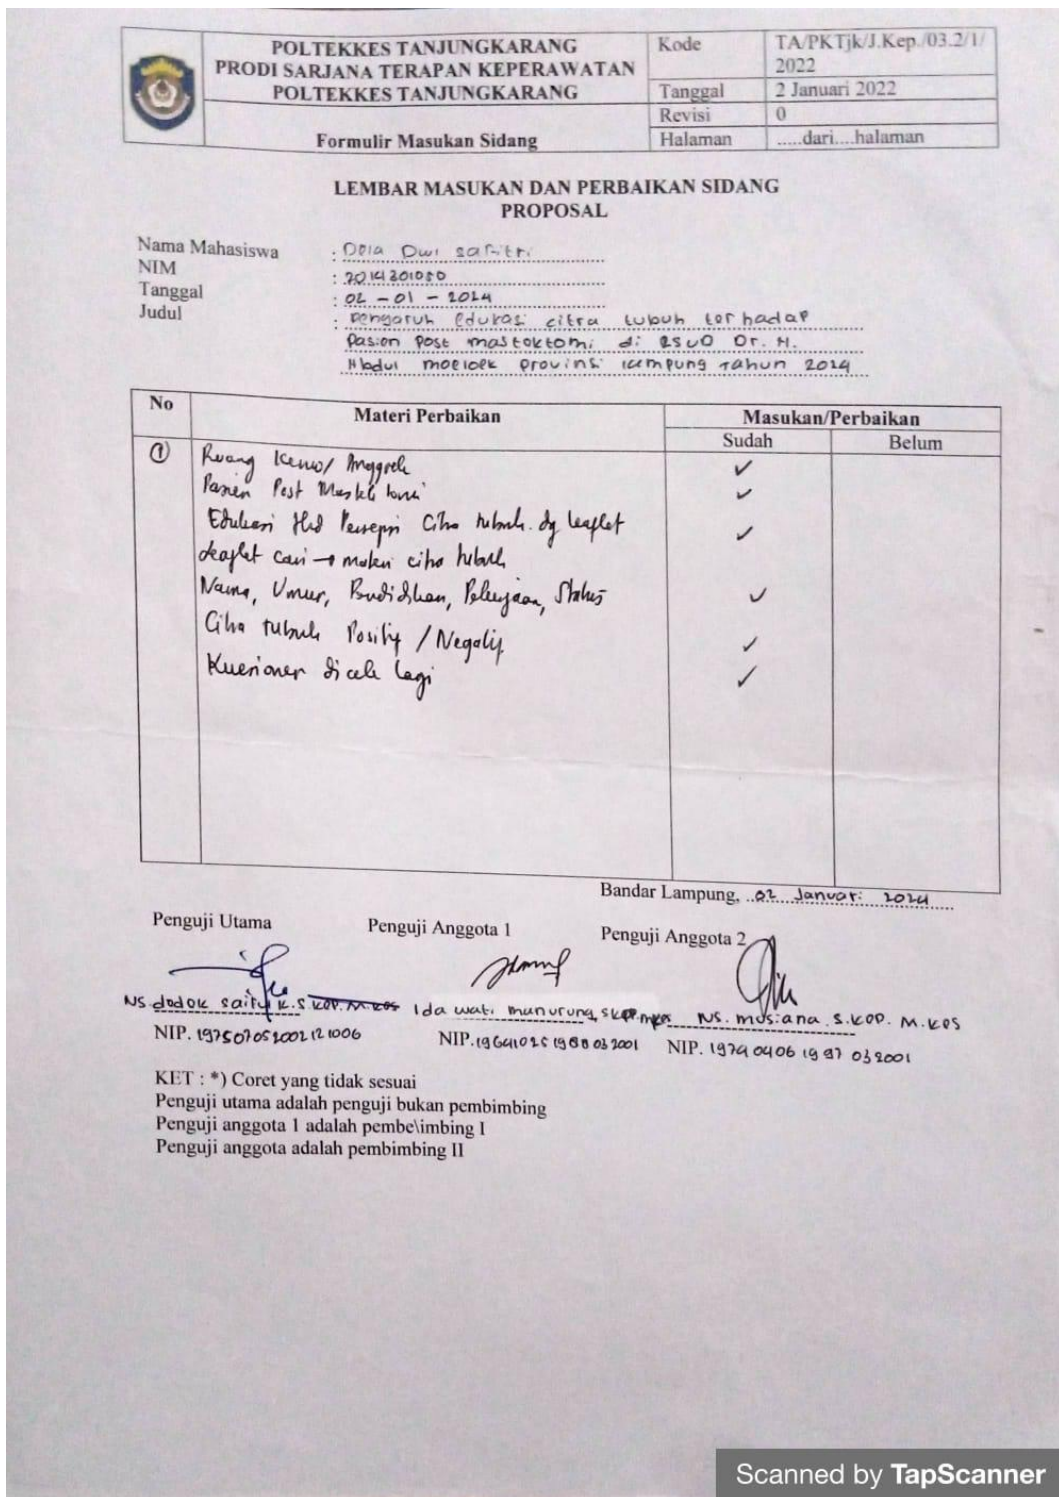 POLTEKKES TANJUNGKARANG
PRODI SARJANA TERAPAN KEPERAWATAN
POLTEKKES TANJUNGKARANG
Formulir Masukan Sidang
Kode TA/PKTjk/J.Kep./03.2/1/
2022
Tanggal 2 Januari 2022
Revisi 0
Halaman .....dari....halaman
LEMBAR MASUKAN DAN PERBAIKAN SIDANG
PROPOSAL
Nama Mahasiswa : Dwi Safitri
NIM : 2014301080
Tanggal : 02 - 01 - 2024
Judul : Pengaruh Edukasi citra tubuh terhadap
Pasien Post mastektomi di RSUD Dr. H.
Abdul moeloek provinsi lampung Tahun 2024
No Materi Perbaikan Masukan/Perbaikan
Sudah Belum
① Ruang Kemo/ Anggrek ✓
Pasien Post ✓
Edukasi thd Persepsi Citra tubuh dg leaflet ✓
leaflet cari → materi citra tubuh
Nama, Umur, Pendidikan, Pekerjaan, Status ✓
Citra tubuh Positif / Negatif ✓
Kuesioner dicek lagi ✓
Bandar Lampung, 02 Januari 2024
Penguji Utama Penguji Anggota 1 Penguji Anggota 2
NS. dodok K.S.Kep.M.Kes Ida wati manurung, S.Kep.M.Kes NS. musiana. S.Kep. M.Kes
NIP. 197507052002121006 NIP. NIP. 197904061997032001
KET : *) Coret yang tidak sesuai
Penguji utama adalah penguji bukan pembimbing
Penguji anggota 1 adalah pembe\imbing I
Penguji anggota adalah pembimbing II
Scanned by TapScanner